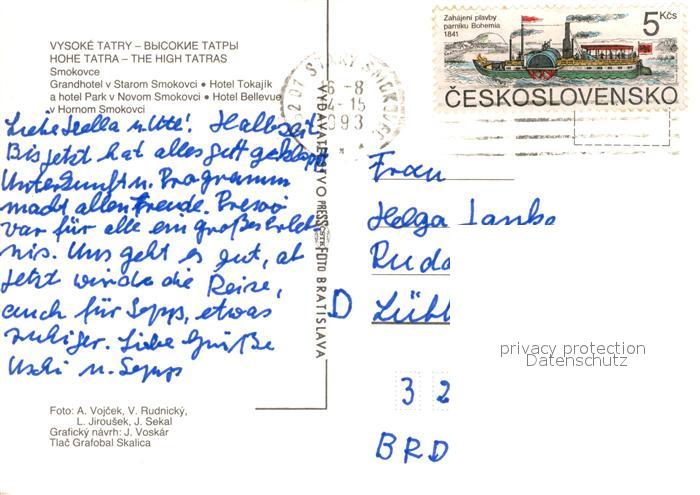 VYSOKÉ TATRY – ВЫСОКИЕ ТАТРЫ
HOHE TATRA – THE HIGH TATRAS
Smokovce
Grandhotel v Starom Smokovci ● Hotel Tokajík
a hotel Park v Novom Smokovci ● Hotel Bellevue
v Hornom Smokovci
Liebe Hella u. Ute! Halbzeit
Bis jetzt hat alles gut geklappt
Unterkunft u. Programm
macht allen Freude. Presov
war für alle ein großes Erleb
nis. Uns geht es gut, ab
jetzt wird die Reise,
auch für Sepp, etwas
ruhiger. Liebe Grüße
Uschi u. Sepp
Foto: A. Vojček, V. Rudnický,
L. Jiroušek, J. Sekal
Grafický návrh: J. Voskár
Tlač Grafobal Skalica
VYDAVATEĽSTVO PRESSFOTO BRATISLAVA
Zahájení plavby
parníku Bohemia
1841
5 Kčs
ČESKOSLOVENSKO
STARÝ SMOKOVEC
6-8
4-15
993
Frau
Helga
Ruda
D Lüb
3 2
BRD
privacy protection
Datenschutz